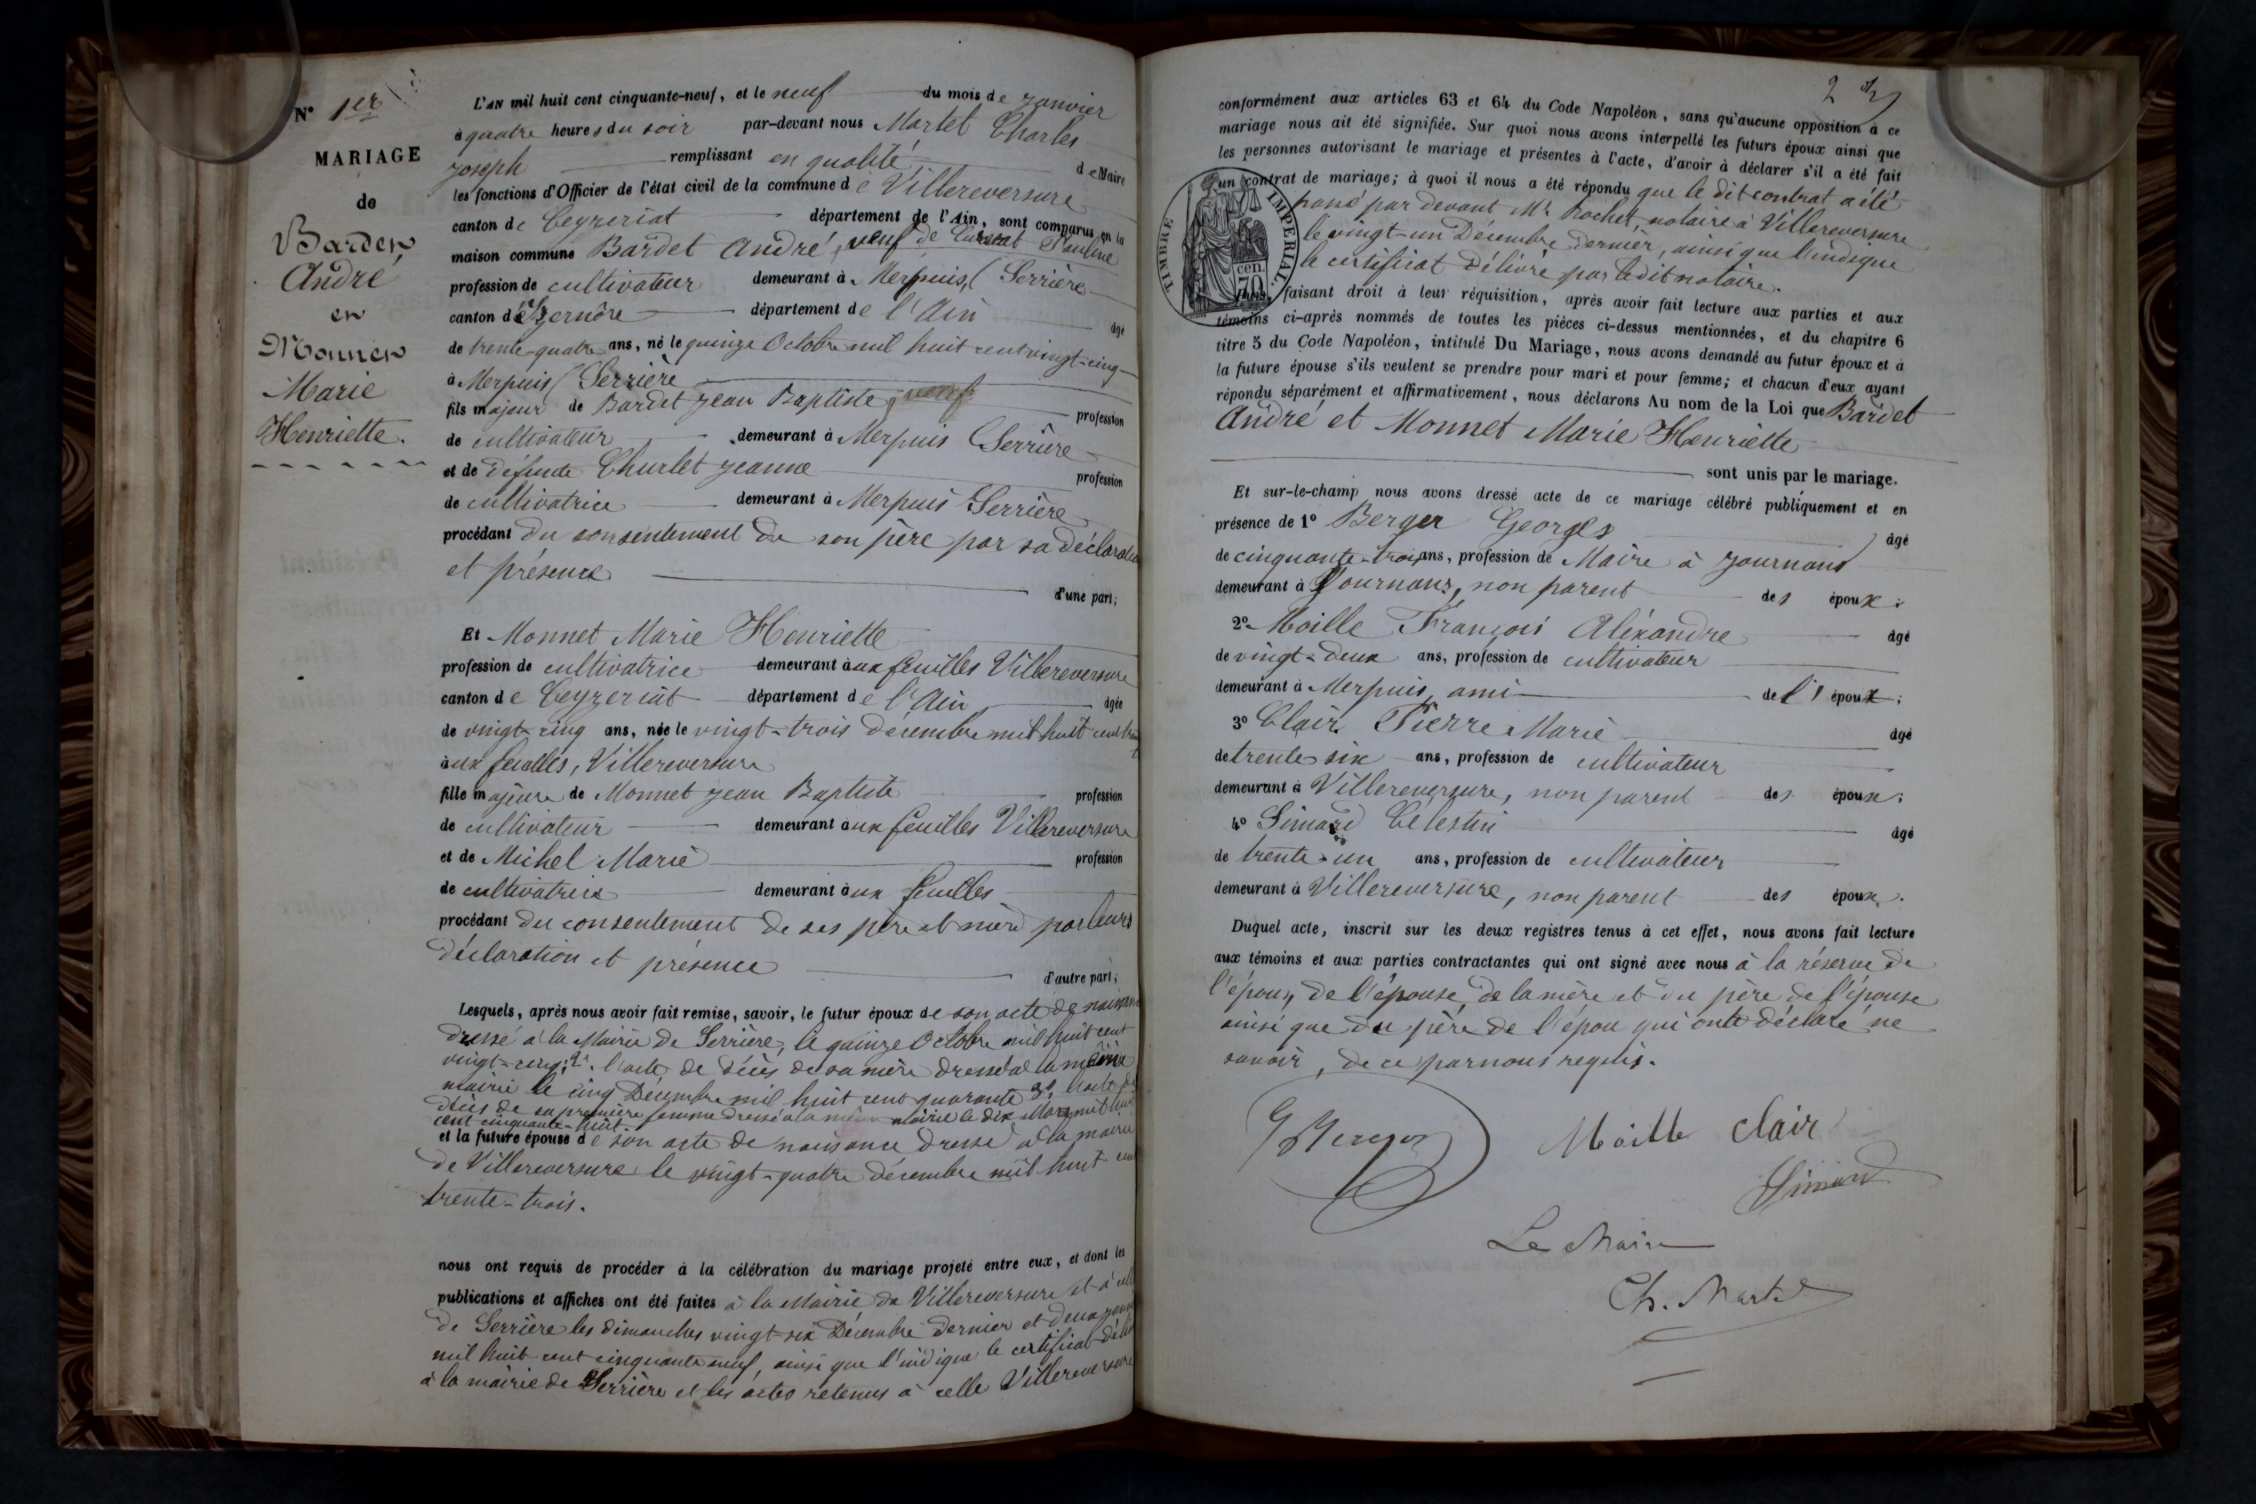 N° 1er
MARIAGE
de
Bardet
André
et
Monnet
Marie
Henriette.
L'AN mil huit cent cinquante-neuf, et le neuf du mois de janvier
à quatre heures du soir par-devant nous Martet Charles
joseph remplissant en qualité de Maire
les fonctions d'Officier de l'état civil de la commune de Villereversure
canton de Ceyzeriat département de l'Ain, sont comparus en la
maison commune Bardet André, veuf de Pauline
profession de cultivateur demeurant à Merpuis, (Serrière
canton d'Izernore département de l'Ain âgé
de trente-quatre ans, né le quinze Octobre mil huit cent vingt-cinq
à Merpuis (Serrière
fils majeur de Bardet jean Baptiste, veuf profession
de cultivateur demeurant à Merpuis (Serrière
et de défunte Churlet jeanne profession
de cultivatrice demeurant à Merpuis Serrière
procédant du consentement de son père par sa déclaration
et présence d'une part;
Et Monnet Marie Henriette
profession de cultivatrice demeurant aux feuilles Villereversure
canton de Ceyzeriat département de l'Ain âgée
de vingt-cinq ans, née le vingt-trois décembre mil huit cent
aux feuilles, Villereversure
fille majeure de Monnet jean Baptiste profession
de cultivateur demeurant aux feuilles Villereversure
et de Michel Marie profession
de cultivatrice demeurant aux feuilles
procédant du consentement de ses père et mère par leurs
déclaration et présence d'autre part;
Lesquels, après nous avoir fait remise, savoir, le futur époux de son acte de naissance
dressé à la Mairie de Serrière, le quinze Octobre mil huit cent
vingt-cinq; 2° l'acte de décès de sa mère dressé à la même
mairie le cinq Décembre mil huit cent quarante 3° l'acte de
décès de sa première femme dressé à la même mairie le dix Mars mil huit
cent cinquante-huit
et la future épouse de son acte de naissance dressé à la mairie
de Villereversure le vingt-quatre décembre mil huit cent
trente-trois.
nous ont requis de procéder à la célébration du mariage projeté entre eux, et dont les
publications et affiches ont été faites à la Mairie de Villereversure et à celle
de Serrière les dimanches vingt-six Décembre dernier et deux janvier
mil huit cent cinquante neuf, ainsi que l'indique le certificat délivré
à la mairie de Serrière et les actes retenus à celle Villereversure
2
conformément aux articles 63 et 64 du Code Napoléon, sans qu'aucune opposition à ce
mariage nous ait été signifiée. Sur quoi nous avons interpellé les futurs époux ainsi que
les personnes autorisant le mariage et présentes à l'acte, d'avoir à déclarer s'il a été fait
un contrat de mariage; à quoi il nous a été répondu que le dit contrat a été
passé par devant Mr Rochet, notaire à Villereversure
le vingt-un Décembre dernier, ainsi que l'indique
le certificat délivré par ledit notaire.
TIMBRE IMPÉRIAL
cen.
70
Nous, faisant droit à leur réquisition, après avoir fait lecture aux parties et aux
témoins ci-après nommés de toutes les pièces ci-dessus mentionnées, et du chapitre 6
titre 5 du Code Napoléon, intitulé Du Mariage, nous avons demandé au futur époux et à
la future épouse s'ils veulent se prendre pour mari et pour femme; et chacun d'eux ayant
répondu séparément et affirmativement, nous déclarons Au nom de la Loi que Bardet
André et Monnet Marie Henriette
sont unis par le mariage.
Et sur-le-champ nous avons dressé acte de ce mariage célébré publiquement et en
présence de 1° Berger Georges âgé
de cinquante-trois ans, profession de Maire à journans
demeurant à Journans, non parent des époux;
2° Moille François Aléxandre âgé
de vingt-deux ans, profession de cultivateur
demeurant à Merpuis, ami de l' époux;
3° Clair Pierre Marie âgé
de trente six ans, profession de cultivateur
demeurant à Villereversure, non parent des époux;
4° Simard Célestin âgé
de trente-un ans, profession de cultivateur
demeurant à Villereversure, non parent des époux.
Duquel acte, inscrit sur les deux registres tenus à cet effet, nous avons fait lecture
aux témoins et aux parties contractantes qui ont signé avec nous à la réserve de
l'époux, de l'épouse, de la mère et du père de l'épouse
ainsi que du père de l'épou qui onte déclaré ne
savoir, de ce par nous requis.
Moille Clair
Simard
Le Maire
Ch. Martet